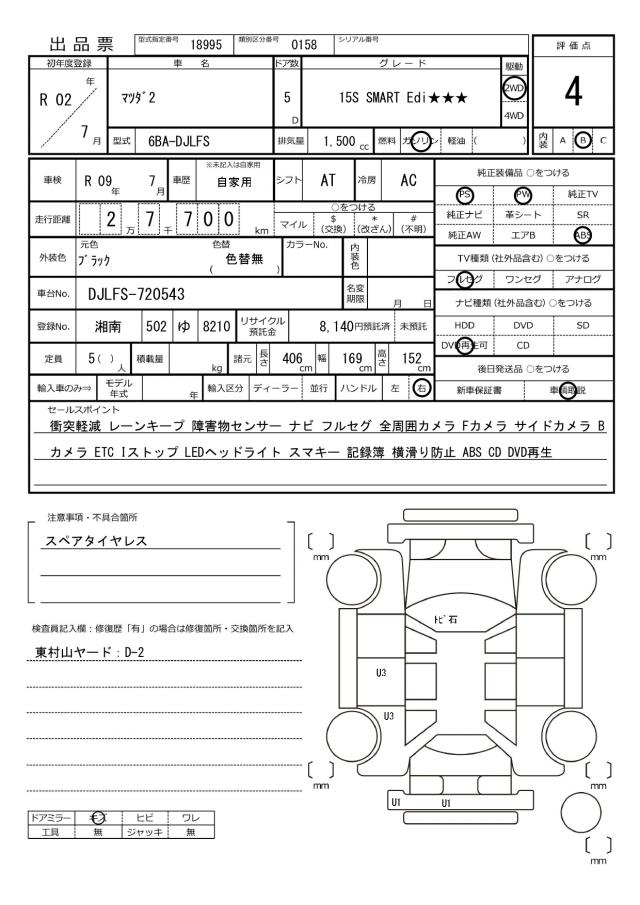 出品票 型式指定番号 18995 類別区分番号 0158 シリアル番号
評価点
4
初年度登録 車名 ドア数 グレード 駆動
R 02 年 7 月 マツダ2 5 D 15S SMART Edi★★★ 2WD 4WD
型式 6BA-DJLFS 排気量 1,500 cc 燃料 ガソリン 軽油 ( ) 内装 A B C
車検 R 09 年 7 月 車歴 ※未記入は自家用 自家用 シフト AT 冷房 AC
走行距離 2 万 7 千 7 0 0 km ○をつける マイル $ (交換) * (改ざん) # (不明)
外装色 元色 ブラック 色替 ( 色替無 ) カラーNo. 内装色
車台No. DJLFS-720543 名変期限 月 日
登録No. 湘南 502 ゆ 8210 リサイクル預託金 8,140円預託済 未預託
定員 5 ( ) 人 積載量 kg 諸元 長さ 406 cm 幅 169 cm 高さ 152 cm
輸入車のみ⇒ モデル年式 年 輸入区分 ディーラー 並行 ハンドル 左 右
純正装備品 ○をつける
PS PW 純正TV
純正ナビ 革シート SR
純正AW エアB ABS
TV種類 (社外品含む) ○をつける
フルセグ ワンセグ アナログ
ナビ種類 (社外品含む) ○をつける
HDD DVD SD
DVD再生可 CD
後日発送品 ○をつける
新車保証書 車輌取説
セールスポイント
衝突軽減 レーンキープ 障害物センサー ナビ フルセグ 全周囲カメラ Fカメラ サイドカメラ B
カメラ ETC Iストップ LEDヘッドライト スマキー 記録簿 横滑り防止 ABS CD DVD再生
注意事項・不具合箇所
スペアタイヤレス
検査員記入欄：修復歴「有」の場合は修復箇所・交換箇所を記入
東村山ヤード：D-2
ドアミラー キズ ヒビ ワレ
工具 無 ジャッキ 無
〔 〕 mm
〔 〕 mm
トビ石
U3
U3
〔 〕 mm
〔 〕 mm
U1 U1
〔 〕 mm